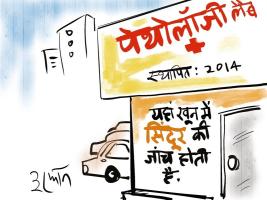 पेथोलॉजी लैब
स्थापित: 2014
यहां खून में
सिंदूर की
जाँच होती
है.